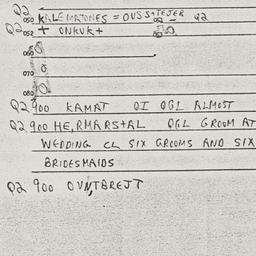 02
050 KALEMATONES = OVSS+TEJER 02
02 052 + ONKUK+
060
070
080
02 900 KAMAT OI OGL ALMOST
02 900 HE,RMARS+AL OGL GROOM AT
WEDDING CL SIX GROOMS AND SIX
BRIDESMAIDS
02 900 OVNTBREJT